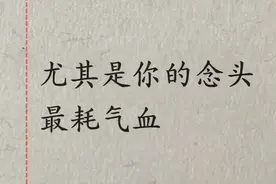 尤其是你的念头
最耗气血